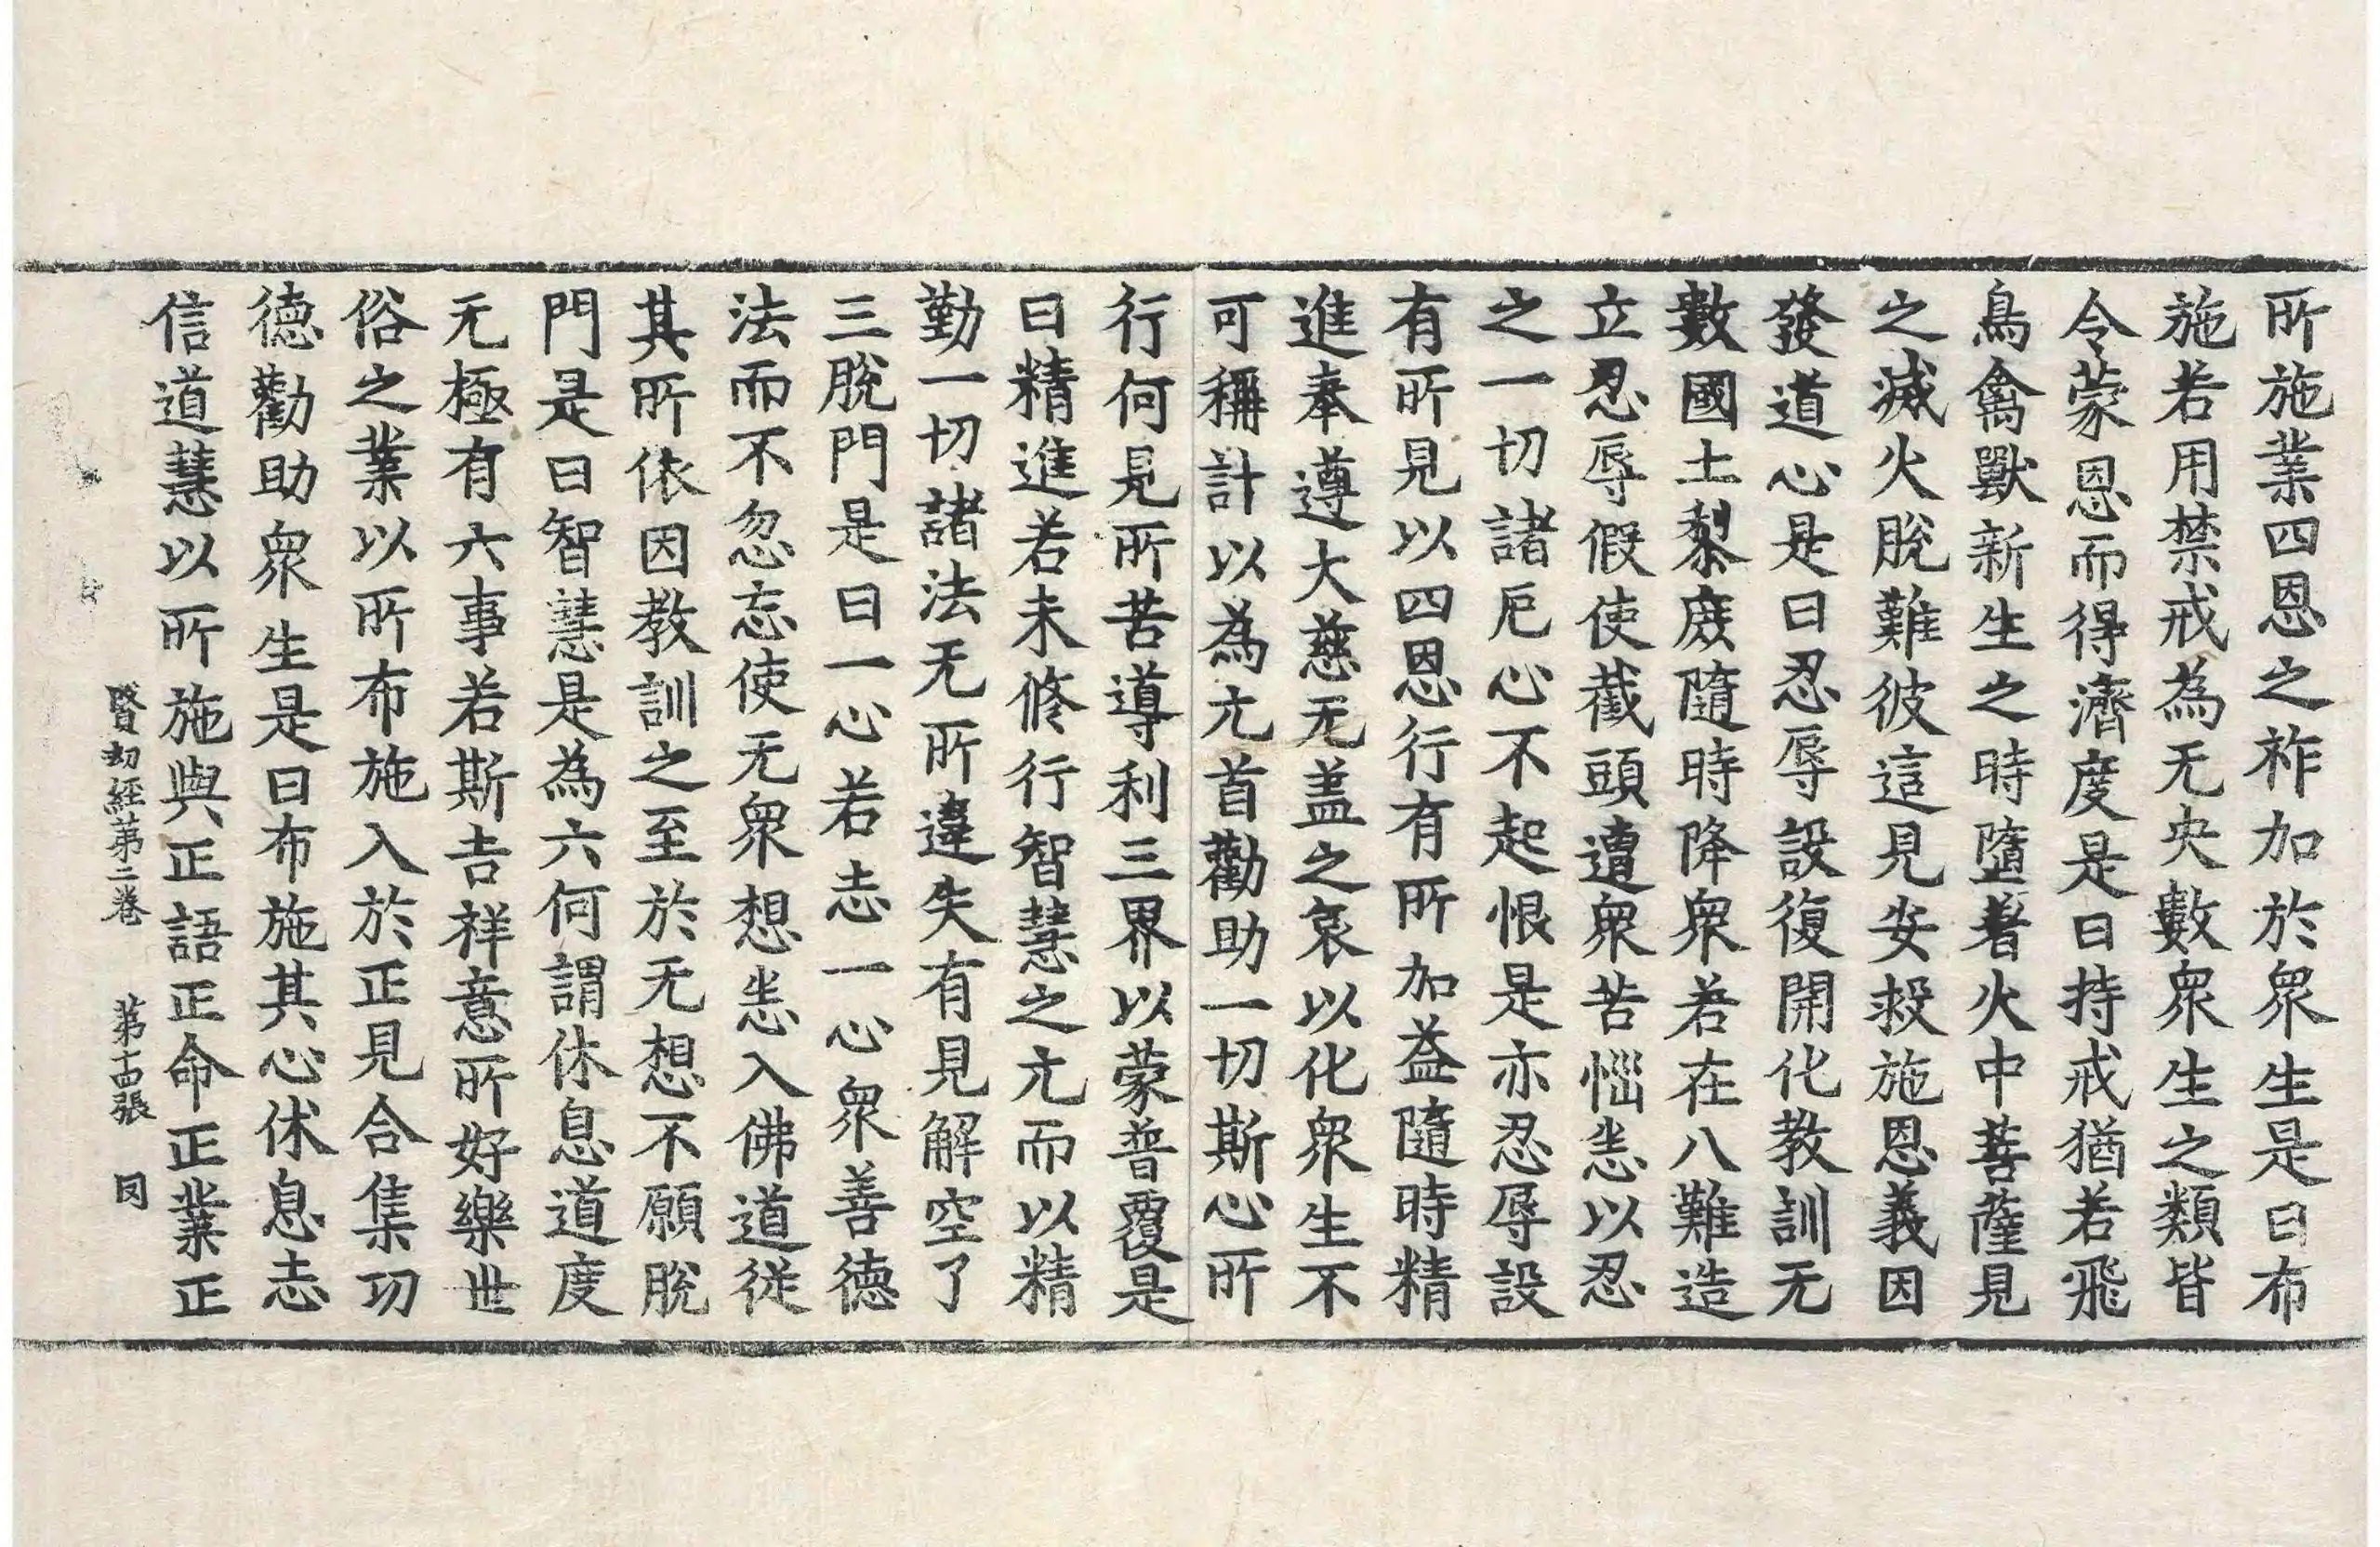 所施業四恩之祚加於衆生是曰布
施若用禁戒為无央數衆生之類皆
令蒙恩而得濟度是曰持戒猶若飛
鳥禽獸新生之時墮著火中菩薩見
之滅火脫難彼這見安救施恩義因
發道心是曰忍辱設復開化教訓无
數國土黎庶隨時降衆若在八難造
立忍辱假使截頭遭衆苦惱恙以忍
之一切諸厄心不起恨是亦忍辱設
有所見以四恩行有所加益隨時精
進奉遵大慈无盖之哀以化衆生不
可稱計以為元首勸助一切斯心所
行何見所苦導利三界以蒙普覆是
曰精進若未修行智慧之元而以精
勤一切諸法无所違失有見解空了
三脫門是曰一心若志一心衆善德
法而不忽忘使无衆想恙入佛道從
其所依因教訓之至於无想不願脫
門是曰智慧是為六何謂休息道度
无極有六事若斯吉祥意所好樂世
俗之業以所布施入於正見合集功
德勸助衆生是曰布施其心休息志
信道慧以所施與正語正命正業正
賢劫經第二卷 第十四張 因